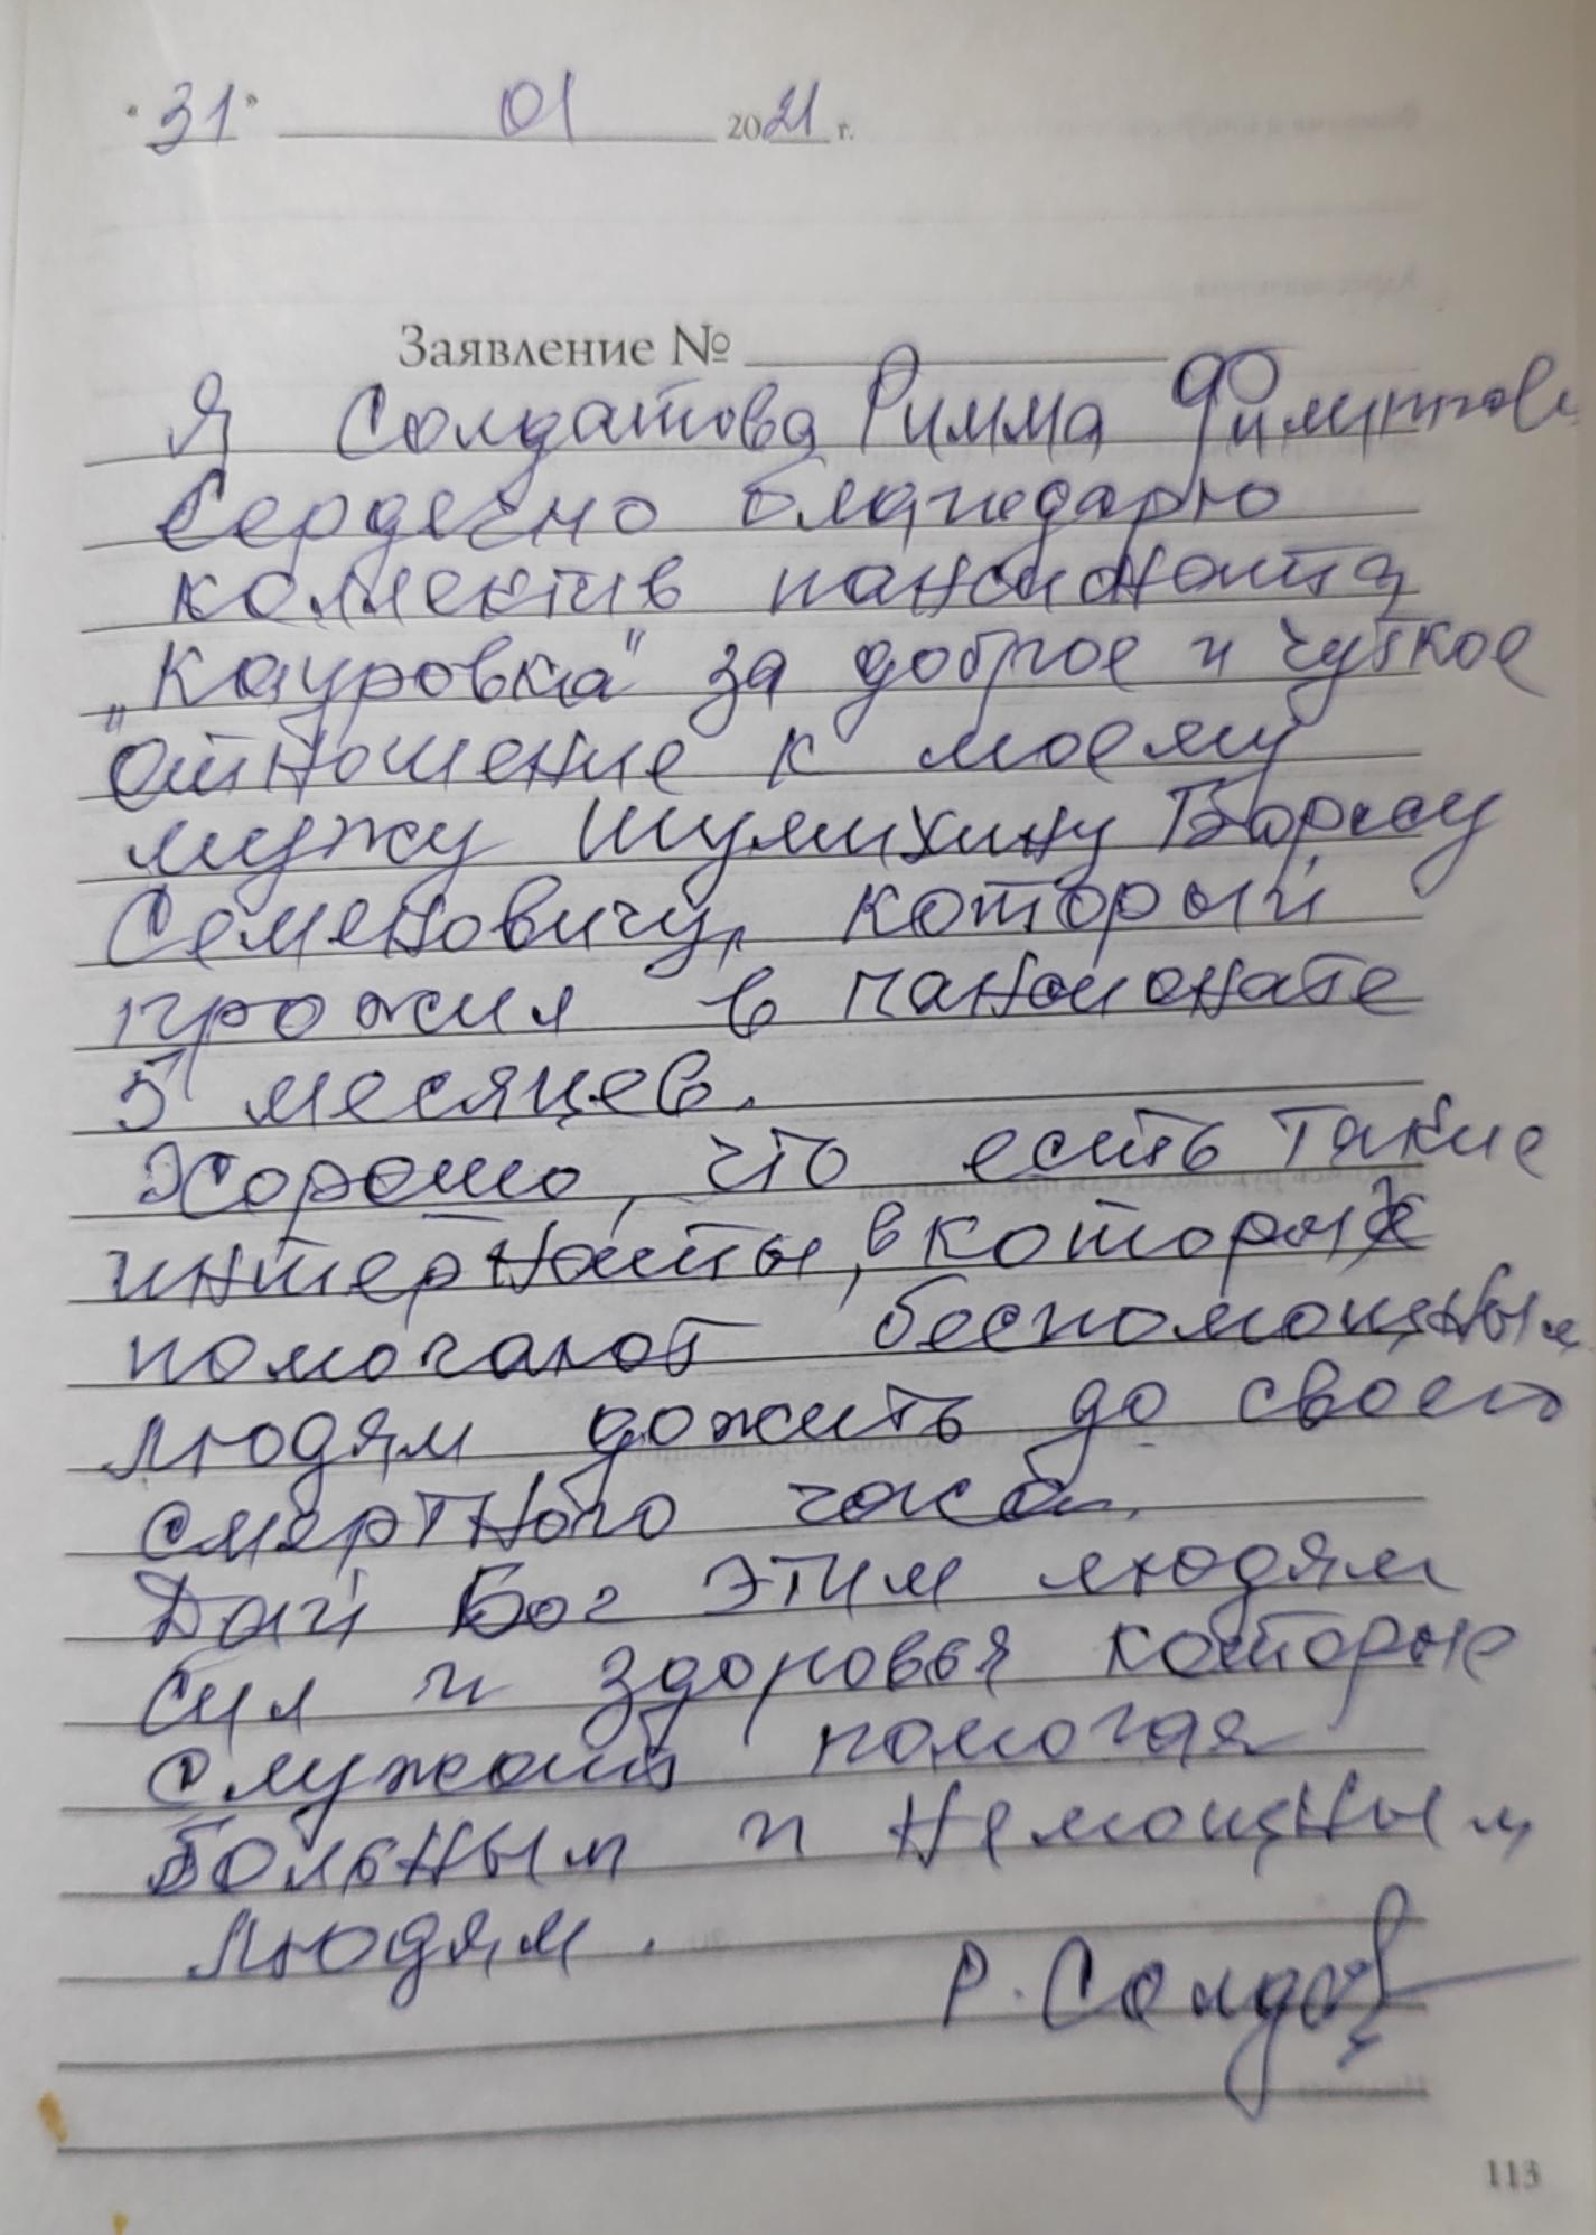 "31" 01 2021 г.
Заявление №
Я Солдатова Римма Филиппов
Сердечно благодарю
коллектив пансионата
"Кауровка" за доброе и чуткое
отношение к моему
мужу Шулихину Борису
Семеновичу, который
прожил в пансионате
5 месяцев.
Хорошо, что есть такие
интернаты, в которых
помогают беспомощным
людям дожить до своего
смертного часа.
Дай Бог этим людям
сил и здоровья которые
служат помогая
больным и немощным
людям.
Р. Солдат
113